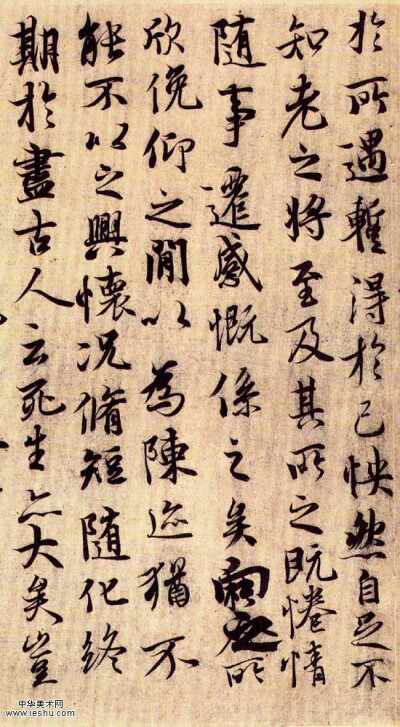 於所遇蹔得於己怏然自足不
知老之將至及其所之既惓情
随事遷感慨係之矣向之所
欣俛仰之閒以為陳迹猶不
能不以之興懷况脩短随化終
期於盡古人云死生亦大矣豈
中华美术网
www.ieshu.com